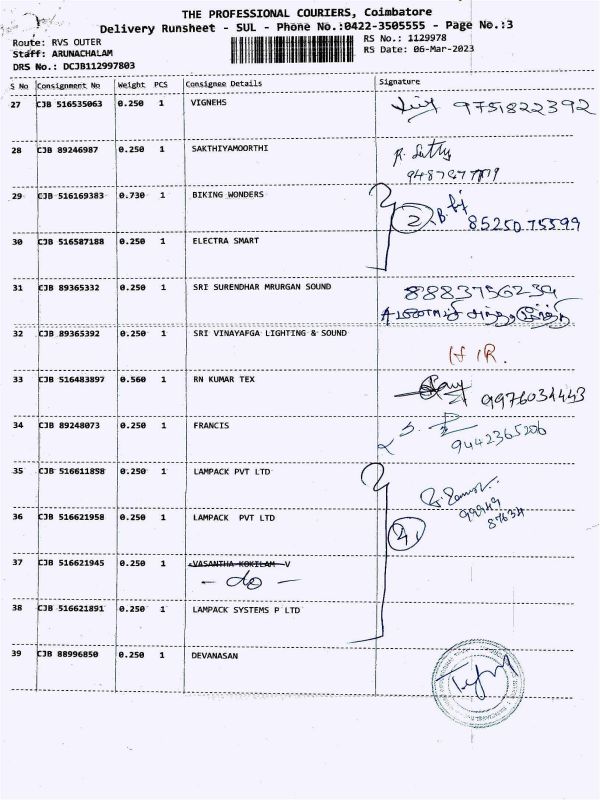 THE PROFESSIONAL COURIERS, Coimbatore
Delivery Runsheet - SUL - Phone No.:0422-3505555 - Page No.:3
Route: RVS OUTER
Staff: ARUNACHALAM
DRS No.: DCJB112997803
RS No.: 1129978
RS Date: 06-Mar-2023
S No Consignment No Weight PCS Consignee Details Signature
27 CJB 516535063 0.250 1 VIGNEHS 9751822392
28 CJB 89246987 0.250 1 SAKTHIYAMOORTHI
29 CJB 516169383 0.730 1 BIKING WONDERS 2 8525075599
30 CJB 516587188 0.250 1 ELECTRA SMART
31 CJB 89365332 0.250 1 SRI SURENDHAR MRURGAN SOUND 88883756239
32 CJB 89365392 0.250 1 SRI VINAYAFGA LIGHTING & SOUND
33 CJB 516483897 0.560 1 RN KUMAR TEX 9976034443
34 CJB 89248073 0.250 1 FRANCIS 9442365206
35 CJB 516611858 0.250 1 LAMPACK PVT LTD
99949
87634
36 CJB 516621958 0.250 1 LAMPACK PVT LTD 4
37 CJB 516621945 0.250 1 VASANTHA KOKILAM V
- do -
38 CJB 516621891 0.250 1 LAMPACK SYSTEMS P LTD
39 CJB 88996850 0.250 1 DEVANASAN